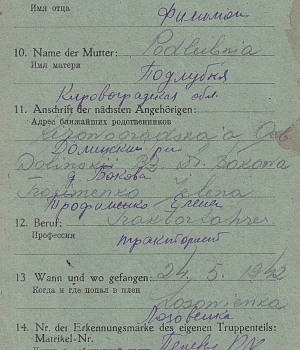 Имя отца
Филимон
10. Name der Mutter: Podlubnia
Имя матери
Подлубня
Кировоградская обл.
11. Anschrift der nächsten Angehörigen:
Адрес ближайших родственников
Долинский р-н
Dolinski D. Bokowa
д. Бокова
Trofimenko Jelena
Трофименко Елена
12. Beruf:
Профессия
тракторист
13 Wann und wo gefangen: 24. 5. 1942
Когда и где попал в плен
Losowienka
Лозовенка
14. Nr. der Erkennungsmarke des eigenen Truppenteils:
Matrikel-Nr.